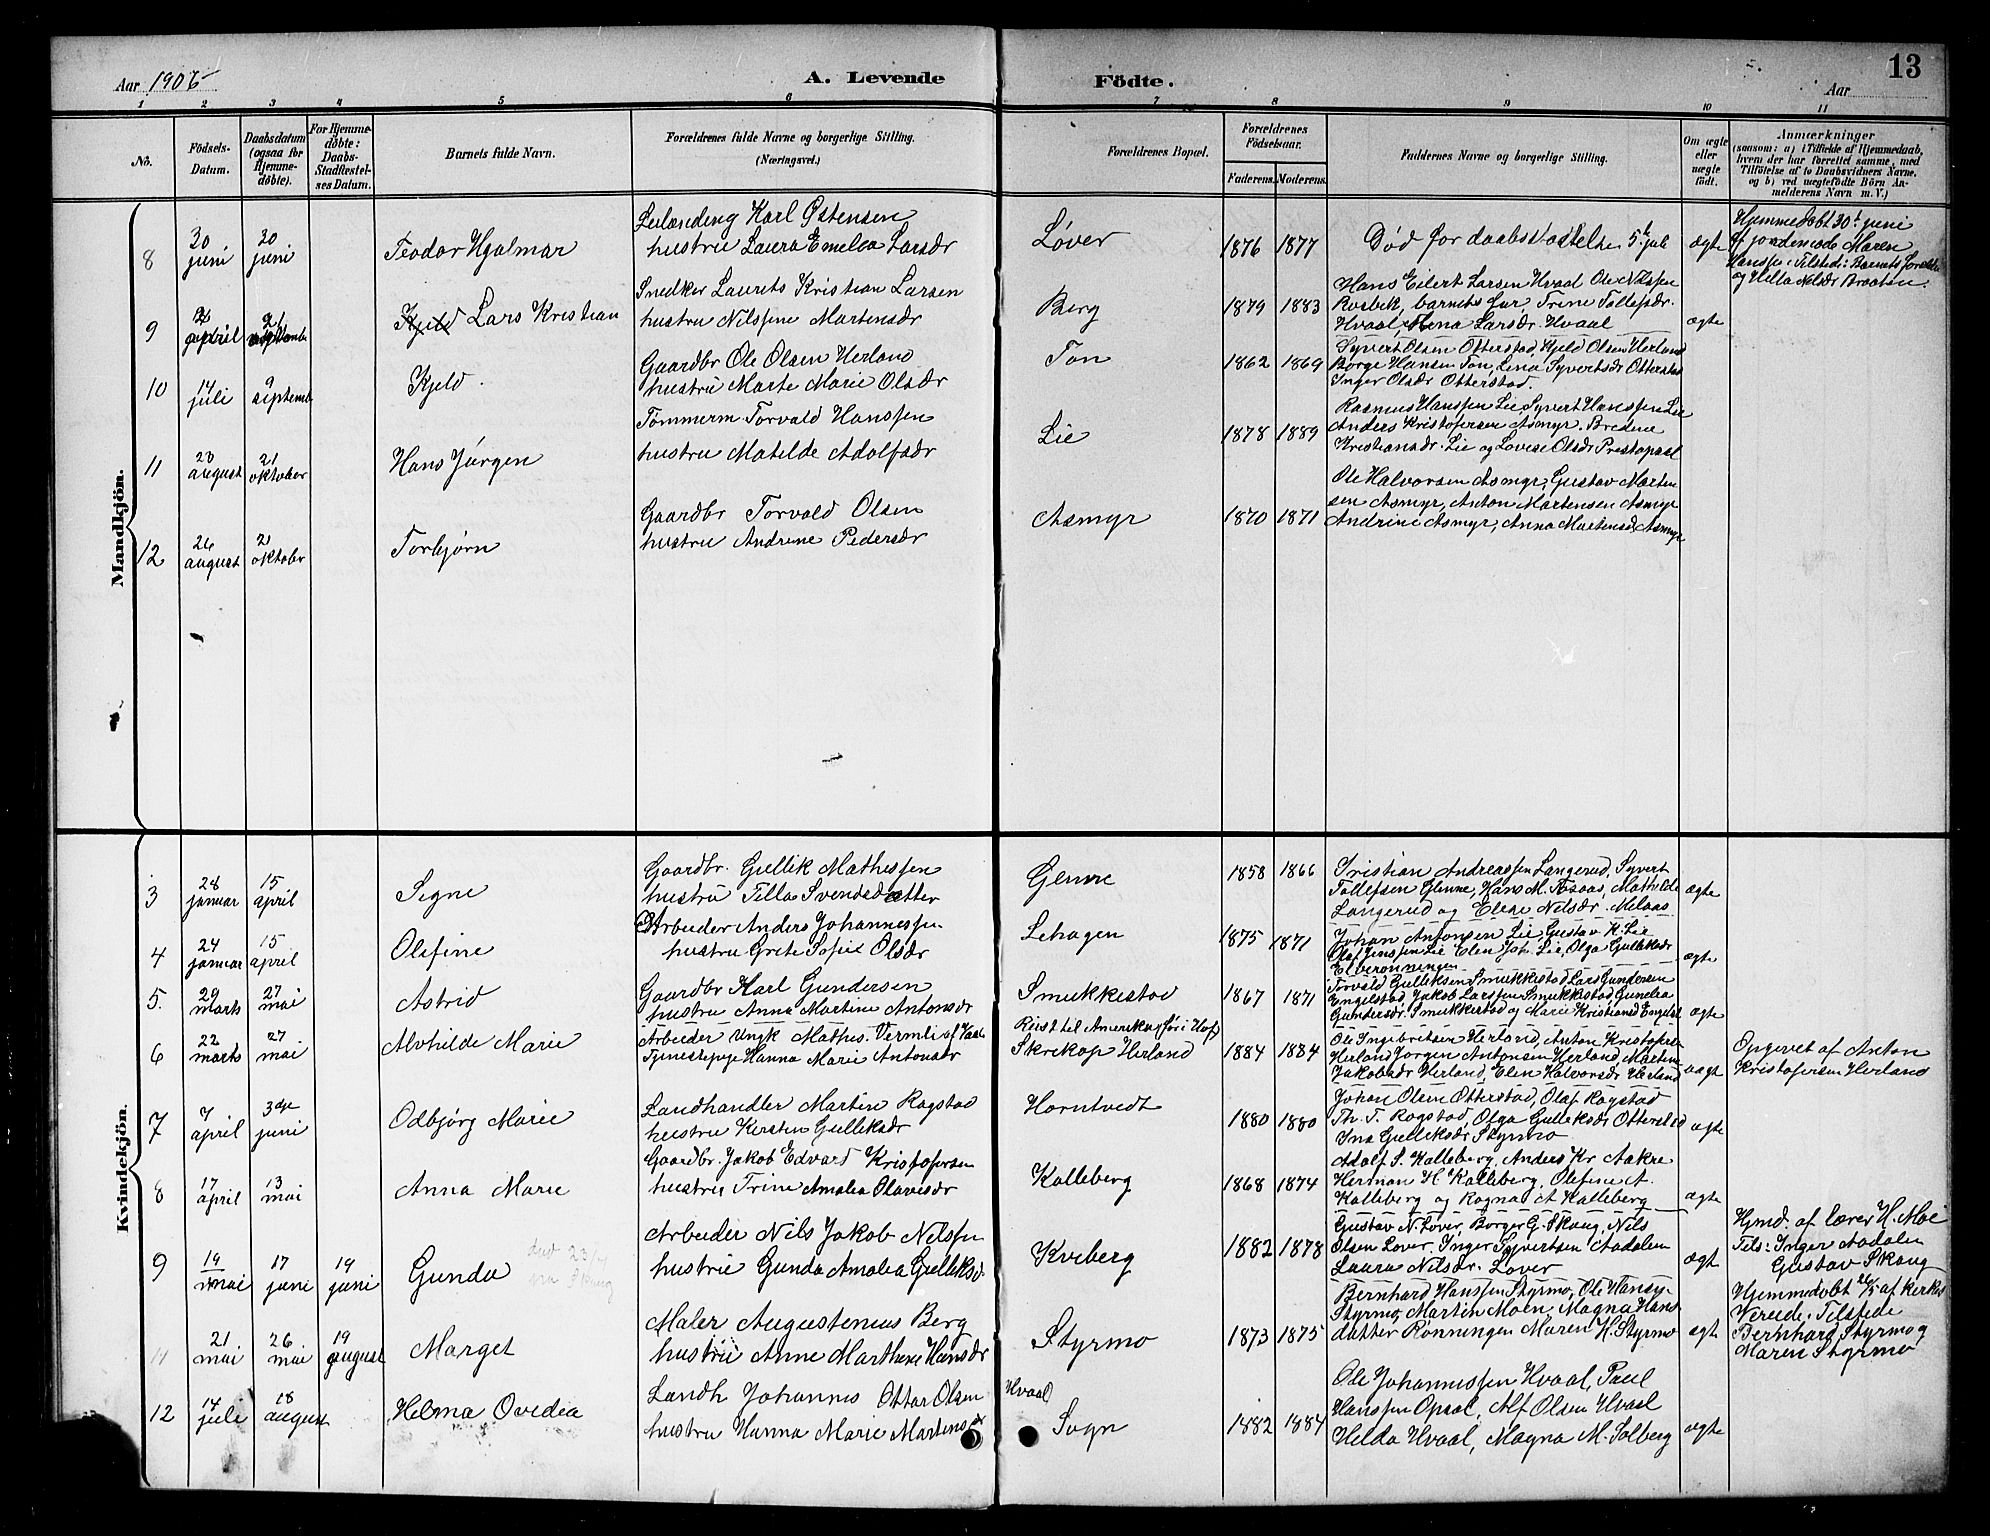 Aar 1906
A. Levende Födte.
Aar
13
1 2 3 4 5 6 7 8 9 10 11
No.
Födsels-Datum.
Daabsdatum (ogsaa for Hjemme-döbte).
For Hjemme-döbte: Daabs-Stadfæstel-ses Datum.
Barnets fulde Navn.
Forældrenes fulde Navne og borgerlige Stilling. (Næringsvei.)
Forældrenes Bopæl.
Forældrenes Födselsaar.
Faderens. Moderens.
Faddernes Navne og borgerlige Stilling.
Om ægte eller uægte födt.
Anmærkninger
(saasom: a) i Tilfælde af Hjemmedaab, hvem der har forrettet samme, med Tilföielse af to Daabsvidners Navne. og b) ved uægtefödte Börn An-melderens Navn m.V.)
Mandkjön.
8
30 juni
30 juni
Teodor Hjalmar
Leilænding Karl Østensen
hustru Laura Emelia Larsdr
Løver
1876 1877
Død før daabsstadfestelse 5te juli
ægte
Hjemmedøbt 30te juni
af jordemode Maren
Hanssen. Tilstede: Barnets foreldre
og Hilla Nelsdr Braaten.
9
april
21 septembr
Kjeld Lars Kristian
Snedker Laurits Kristian Larsen
hustru Nilssine Martensdr
Berg
1879 1883
Hans Eilert Larsen Hvaal
Rosbek, barnets far, Trine Tollefsdr.
Hvaal, Lena Larsdr. Hvaal
ægte
10
14 juli
9 septemb
Kjeld.
Gaardbr Ole Olsen Herland
hustru Marte Marie Olsdr
Ton
1862 1869
Syvert Olsen Otterstad, Kjeld Olsen Herland
Børge Hansen Ton, Lena Syvertsdr Otterstad
Inger Olsdr Otterstad.
11
23 august
21 oktober
Hans Jørgen
Tømmerm. Torvald Hanssen
hustru Matilde Adolfsdr
Lie
1878 1889
Rasmus Hanssen Lie, Syvert Hanssen Lie
Anders Kristofersen Asmyr. Bredine
Kristiansdr. Lie og Lovise Olsdr Prestopsal
12
26 august
21 oktobr
Torbjørn
Gaardbr Torvald Olsen
hustru Andrine Pedersdr
Asmyr
1870 1871
Ole Halvorsen Asmyr, Gustav Marten
sen Asmyr, Anton Martensen Asmyr
Andrine Asmyr, Anna Martensd. Asmyr
Kvindekjön.
3
28 januar
15 april
Signe
Gaardbr. Gullik Mathessen
hustru Tilla Svendsdatter
Glenne
1858 1866
Kristian Andreassen Langerud, Syvert
Tollefsen Glenne, Hans M. Aasaas, Mathilde
Langerud og Elene Nilsdr. Melaas
ægte
4
24 januar
15 april
Olefine
Arbeider Anders Johannessen
hustru Grete Sofie Olsdr
Lehagen
1875 1871
Johan Antonsen Lie, Gustav K. Lie
Olaf Jenssen Lie Elen Joh. Lie, Olga Gulleksdr
Elverønningen
ægte
5.
29 marts
27 mai
Astrid
Gaardbr Karl Gundersen
hustru Anna Martine Antonsdr
Smukkestad
1867 1871
Torvald Gulleksen Smukkestad Lars Gundersen
Engelstad, Jakob Larssen Smukkestad, Gunelia
Gundersdr. Smukkestad og Marie Kristiansd Engelst
ægte
6
22 marts
27 mai
Alvhilde Marie
Arbeider ungk Mathes. Vermli af Vaale
Tjenestepige Hanna Marie Antonsdr
Reist til Amerika, før i Hof
Skrekop Herland
1884 1884
Ole Ingebretsen Herland, Anton Kristofers
Herland Jørgen Antonsen Herland, Martine
Jakobsdr Herland, Elen Halvorsdr Herland
uægte
Opgevet af Anton
Kristofersen Herland
7
7 april
3die juni
Odbjørg Marie
Landhandler Martin Rogstad
hustru Kersten Gulliksdr
Horntvedt
1880 1880
Johan Olsen Otterstad, Olaf Rogstad
Th. T. Rogstad, Olga Gulleksdr Otterstad
Ina Gulleksdr Styrmo
ægte
8
17 april
13 mai
Anna Marie
Gaardbr. Jakob Edvard Kristofersen
hustru Trine Amalia Olavesdr
Kalleberg
1868 1874
Adolf S. Kalleberg, Anders Kr. Aakre
Herman H. Kalleberg, Olefine A.
Kalleberg og Ragna A Kalleberg
ægte
9
19 mai
17 juni
19 juni
Gunda
død 23/4
Arbeider Nils Jakob Nelssen
hustru Gunda Amalia Gulleksd.
Kveberg
1882 1878
Gustav N. Løver, Børger G. Skoug, Nils
Olsen Løver, Inger Syvertsen Aadalen
Laura Nilsdr. Løver
ægt
Hjmd. af lærer H. Moe
Tils: Inger Aadalen
Gustav Skoug
11
21 mai
26 mai
19 august
Marget
Maler Augustenius Berg
hustru Anne Marthene Hansdr
Styrmo
1873 1875
Bernhard Hanssen Styrmo, Ole Hansen
Styrmo, Martin Moen, Magna Hans
datter Rønningen Maren H. Styrmo
ægt
Hjemmedøbt 26/5 af kerkes
Tilstede
Bernhard Styrmo og
Maren Styrmo
12
14 juli
18 august
Helma Ovedia
Landh Johannes Ottar Olsen
hustru Hanna Marie Martensdr
Hvaal
Sogn
1882 1884
Ole Johannessen Hvaal, Paul
Hanssen Opsal, Alf Olsen Hvaal
Helda Hvaal, Magna M. Solberg
ægte